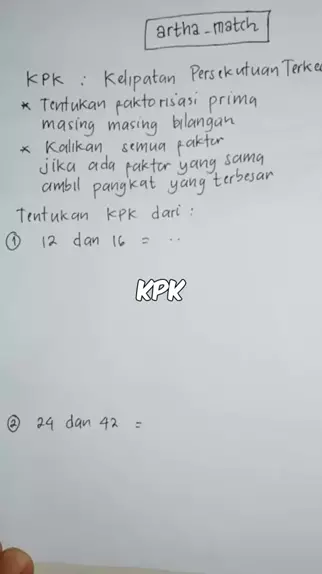 artha_match
KPK : Kelipatan Persekutuan
* Tentukan faktorisasi prima
masing masing bilangan
* Kalikan semua faktor
jika ada faktor yang sama
ambil pangkat yang terbesar
Tentukan KPK dari :
① 12 dan 16 = ..
KPK
② 24 dan 42 =